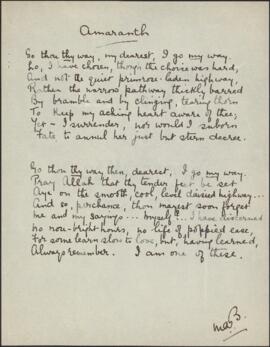 Amaranth
Go thou thy way, my dearest, I go my way.
Lo, I have chosen, though the choice was hard,
And not the quiet primrose-laden highway,
Rather the narrow pathway thickly barred
By bramble and by clinging, tearing thorn
To keep my aching heart aware of thee;
Yet - I surrender, nor would I suborn
Fate to annul her just but stern decree.
Go thou thy way then, dearest, I go my way.
Pray Allah that thy tender feet be set
Aye on the smooth cool level daisied highway...
And so, perchance, thou mayest soon forget
me and my sayings... myself!.. I have discerned
no noon-bright hours, no life of poppied ease,
For some learn slow to love, but, having learned,
Always remember. I am one of these.